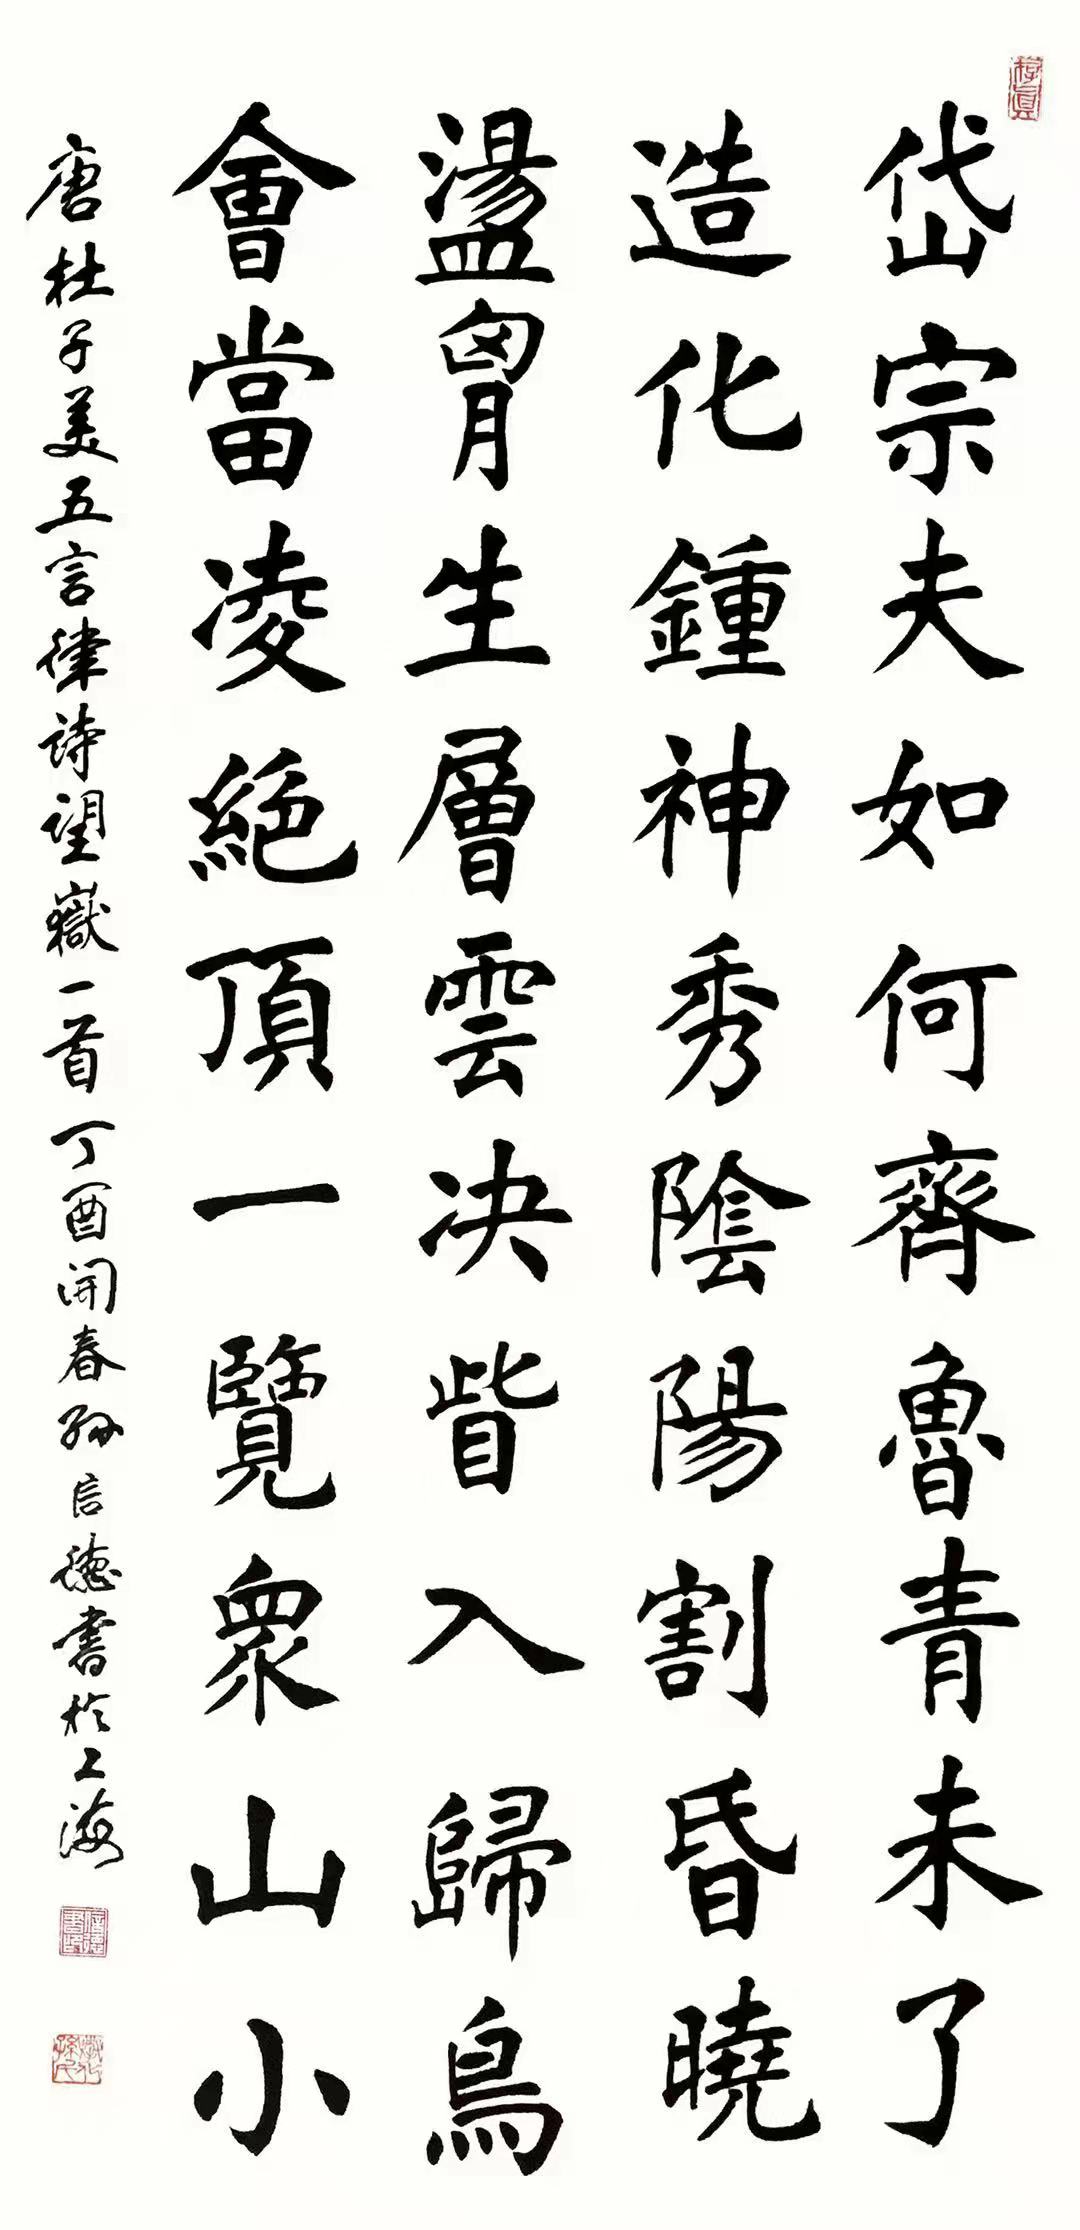 岱宗夫如何齊魯青未了
造化鍾神秀陰陽割昏曉
盪胷生層雲决眥入歸鳥
會當凌絕頂一覽衆山小
唐杜子美五言律詩望嶽一首丁酉開春孫信德書於上海